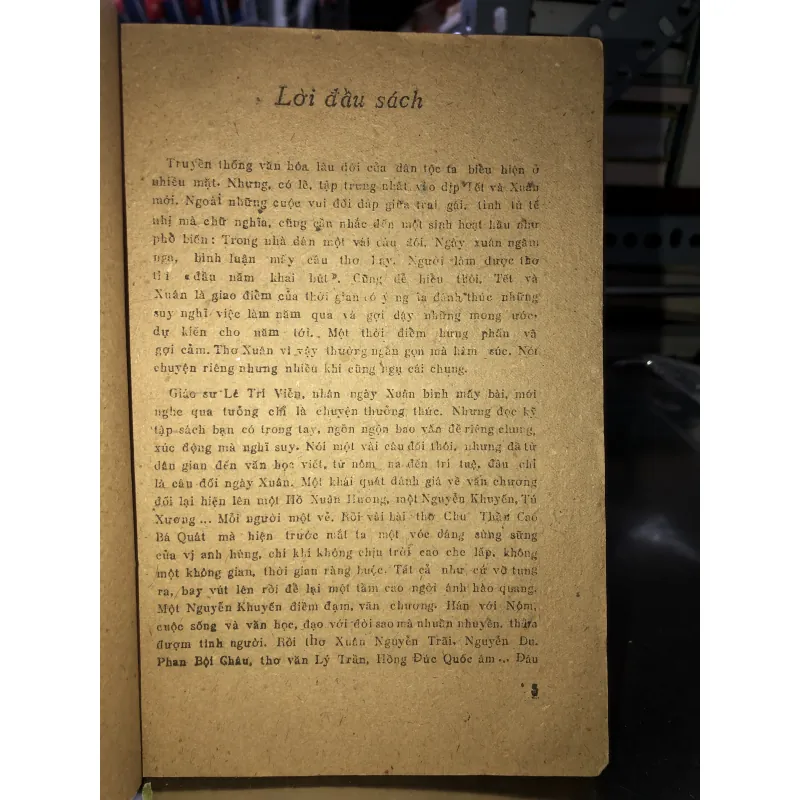 Lời đầu sách
Truyền thống văn hóa lâu đời của dân tộc ta biểu hiện ở
nhiều mặt. Nhưng, có lẽ, tập trung nhất vào dịp Tết và Xuân
mới. Ngoài những cuộc vui đối đáp giữa trai gái, tình tứ tế
nhị mà chữ nghĩa, cũng cần nhắc đến một sinh hoạt hầu như
phổ biến: Trong nhà dán một vài câu đối. Ngày xuân ngâm
nga, bình luận mấy câu thơ hay. Người làm được thơ
thì « đầu năm khai bút ». Cũng dễ hiểu thôi. Tết và
Xuân là giao điểm của thời gian có ý nghĩa đánh thức những
suy nghĩ việc làm năm qua và gợi dậy những mong ước,
dự kiến cho năm tới. Một thời điểm hưng phấn và
gợi cảm. Thơ Xuân vì vậy thường ngắn gọn mà hàm súc. Nói
chuyện riêng nhưng nhiều khi cũng ngụ cái chung.
Giáo sư Lê Trí Viễn, nhân ngày Xuân bình mấy bài, mới
nghe qua tưởng chỉ là chuyện thưởng thức. Nhưng đọc kỹ
tập sách bạn có trong tay, ngồn ngộn bao vấn đề riêng chung,
xúc động mà nghĩ suy. Nói một vài câu đối thôi, nhưng đã từ
dân gian đến văn học viết, từ nôm na đến trí tuệ, đâu chỉ
là câu đối ngày Xuân. Một khái quát đánh giá về văn chương
đối lại hiện lên một Hồ Xuân Hương, một Nguyễn Khuyến, Tú
Xương... Mỗi người một vẻ. Rồi vài bài thơ Chu Thần Cao
Bá Quát mà hiện trước mắt ta một vóc dáng sừng sững
của vị anh hùng, chí khí không chịu trời cao che lấp, không
một không gian, thời gian ràng buộc. Tất cả như cứ vỡ tung
ra, bay vút lên rồi để lại một tầm cao ngời ánh hào quang.
Một Nguyễn Khuyến điềm đạm, văn chương. Hán với Nôm,
cuộc sống và văn học, đạo với đời sao mà nhuần nhuyễn, thấm
đượm tình người. Rồi thơ Xuân Nguyễn Trãi, Nguyễn Du,
Phan Bội Châu, thơ văn Lý Trần, Hồng Đức Quốc âm... Đâu
5